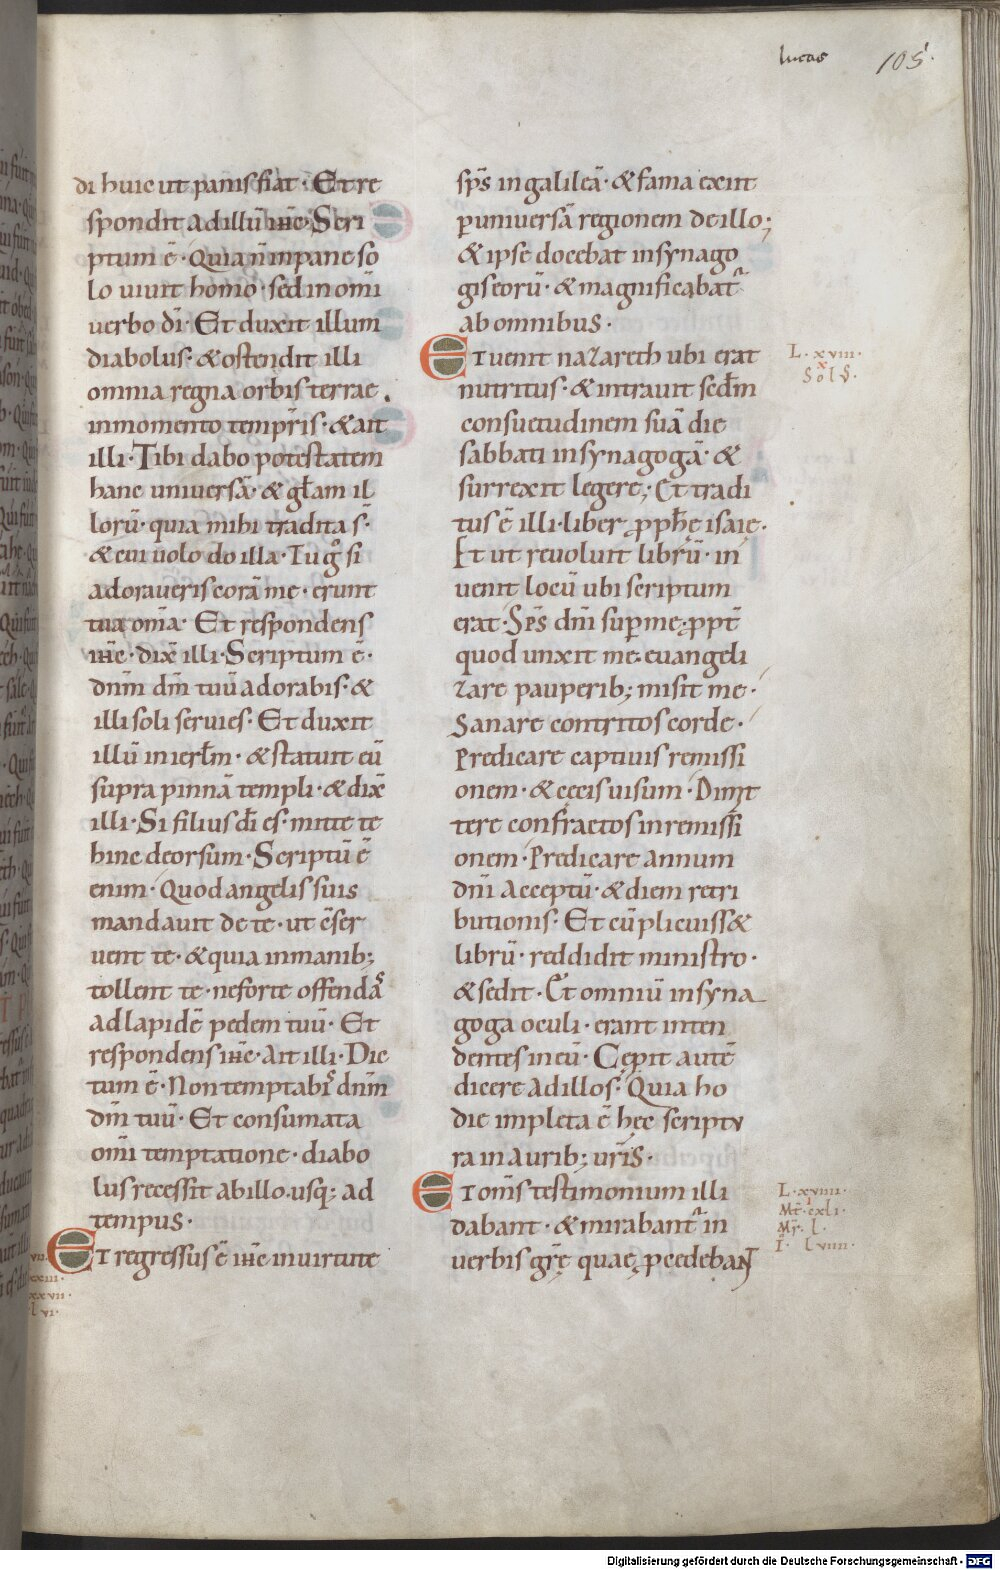 lucas 105
di huic ut panis fiat · Et re
spondit ad illū ihc · Scri
ptum ē · Quia n̄ in pane so
lo uiuit homo · sed in om̄i
uerbo dī · Et duxit illum
diabolus · & ostendit illi
omnia regna orbis terrae
in momento temp̄ris · & ait
illi · Tibi dabo potestatem
hanc uniuersā · & gl̄am il
lorū · quia mihi tradita s̄ ·
& cui uolo do illa · Tu gͦ si
adoraueris corā me · erunt
tua om̄ia · Et respondens
ihc · dix̄ illi · Scriptum ē ·
dn̄m dm̄ tuū adorabis · &
illi soli seruies · Et duxit
illū in ierl̄m · & statuit eū
supra pinnā templi · & dix̄
illi · Si filius dī es · mitte te
hinc deorsum · Scriptū ē
enim · Quod angelis suis
mandauit de te · ut c̄ser
uent te · & quia in manib;
tollent te · ne forte offendaˢ
ad lapidē pedem tuū · Et
respondens ihc · ait illi · Dic
tum ē · Non temptabiˢ dn̄m
dm̄ tuū · Et consumata
om̄i temptatione · diabo
lus recessit ab illo · usq; ad
tempus ·
Et regressus ē ihc in uirtute
sp̄s in galileā · & fama exiit
p uniuersā regionem de illo;
& ipse docebat in synago
gis eorū · & magnificabat᷑
ab omnibus ·
Et uenit nazareth ubi erat
nutritus · & intrauit scd̄m
consuetudinem suā die
sabbati in synagogā · &
surrexit legere; Et tradi
tus ē illi · liber pph̄e isaie ·
Et ut reuoluit librū · in
uenit locū ubi scriptum
erat · Sp̄s dn̄i sup me · ppt̄
quod unxit me · euangeli
zare pauperib; misit me ·
Sanare contritos corde ·
Predicare captiuis remissi
onem · & cecis uisum · Dimit
tere confractos in remissi
onem · Predicare annum
dn̄i acceptū · & diem retri
butionis · Et cū plicuiss&
librū · reddidit ministro ·
& sedit · Et omniū in syna
goga oculi · erant inten
dentes in eū · Cepit autē
dicere ad illos · Quia ho
die impleta ē hec scriptu
ra in aurib; ur̄is ·
Et om̄s testimonium illi
dabant · & mirabant᷑ in
uerbis gr̄ę quae pcedebant
L · xviii ·
x
Sol ·
L · xviiii ·
Mt̄ · cxli ·
Mr̄ · l ·
I · lviiii ·
vii ·
xxiii ·
xxvii ·
lvi ·
Digitalisierung gefördert durch die Deutsche Forschungsgemeinschaft - DFG